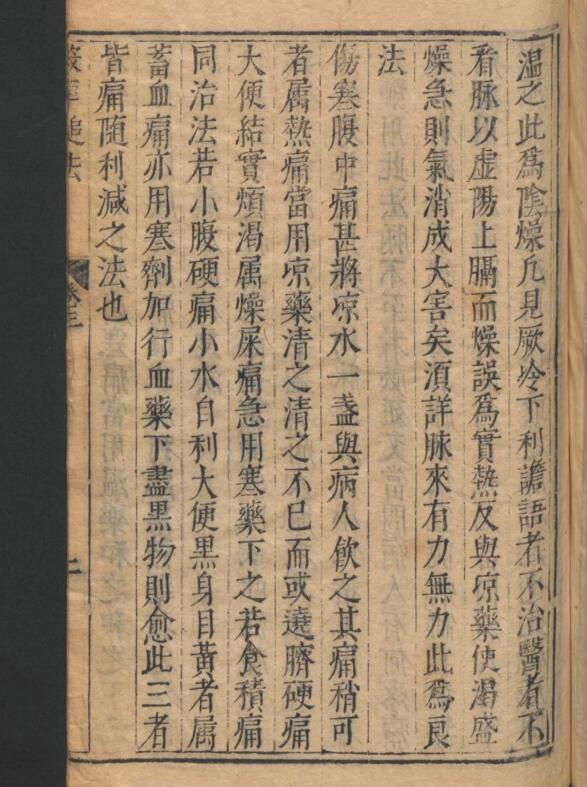 温之此爲陰燥凢見厥冷下利譫語者不治醫者不
看脉以虚陽上膈而燥誤爲實熱反與凉藥使渴盛
燥急則氣消成大害矣湏詳脉來有力無力此爲良
法
傷寒腹中痛甚將凉水一盞與病人飲之其痛稍可
者屬熱痛當用凉藥清之清之不已而或遶臍硬痛
大便結實煩渴属燥屎痛急用寒藥下之若食積痛
同治法若小腹硬痛小水自利大便黒身目黃者属
蓄血痛亦用寒劑加行血藥下盡黒物則愈此三者
皆痛随利減之法也
殺車槌法 卷三 二